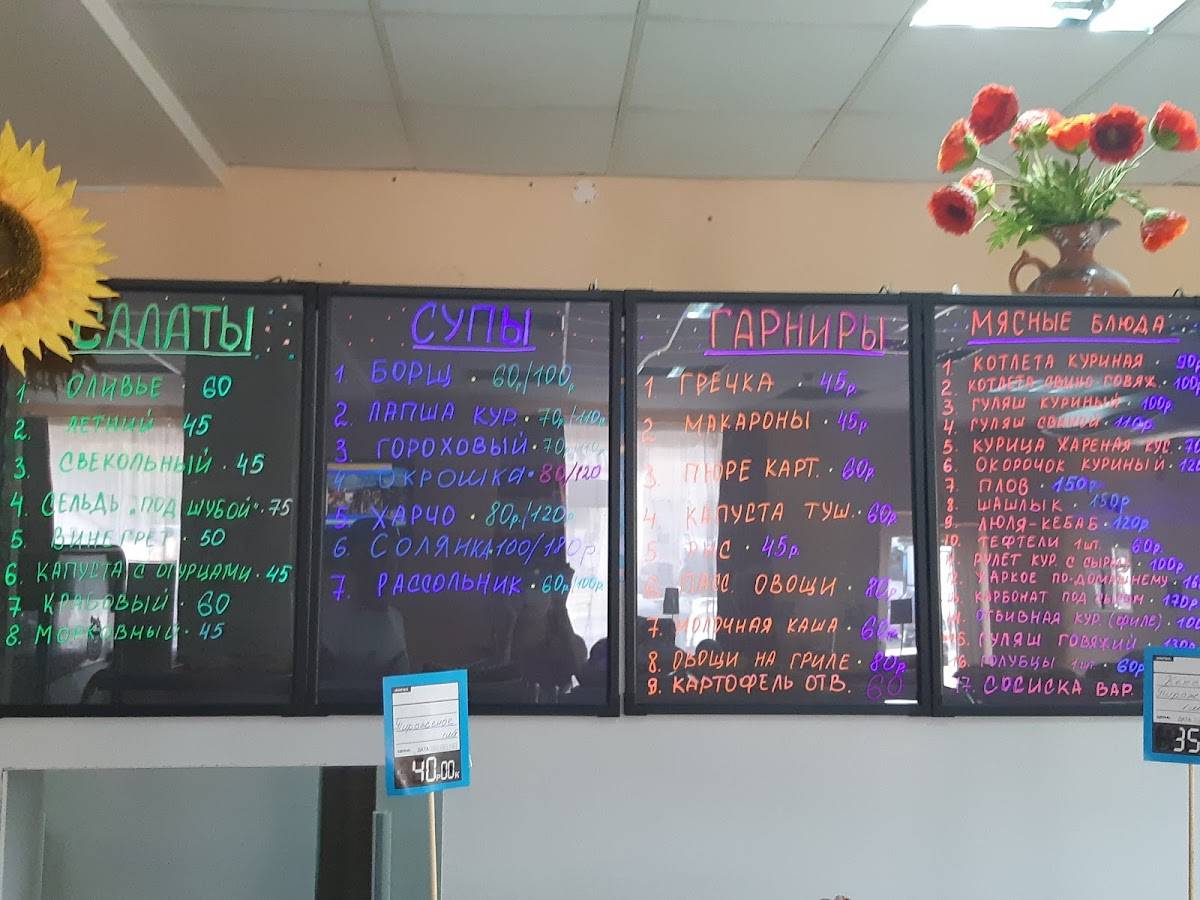 САЛАТЫ
1. ОЛИВЬЕ · 60
2. ЛЕТНИЙ · 45
3. СВЕКОЛЬНЫЙ · 45
4. СЕЛЬДЬ "ПОД ШУБОЙ" · 75
5. ВИНЕГРЕТ · 50
6. КАПУСТА С ОГУРЦАМИ · 45
7. КРАБОВЫЙ · 60
8. МОРКОВНЫЙ · 45
СУПЫ
1. БОРЩ · 60р/100р
2. ЛАПША КУР. · 70р/110р
3. ГОРОХОВЫЙ · 70
4. ОКРОШКА · 80/120
5. ХАРЧО · 80р/120р
6. СОЛЯНКА 100/180р
7. РАССОЛЬНИК · 60р/100р
ГАРНИРЫ
1. ГРЕЧКА · 45р
2 МАКАРОНЫ · 45р
3. ПЮРЕ КАРТ. · 60р
4. КАПУСТА ТУШ. · 60р
5. РИС · 45р
6. ПАСС. ОВОЩИ · 80р
7. МОЛОЧНАЯ КАША · 60
8. ОВОЩИ НА ГРИЛЕ · 80р
9. КАРТОФЕЛЬ ОТВ. 60
МЯСНЫЕ БЛЮДА
1 КОТЛЕТА КУРИНАЯ · 90р
2. КОТЛЕТА СВИНО ГОВЯЖ. · 100
3. ГУЛЯШ КУРИНЫЙ · 100р
4. ГУЛЯШ СВИНОЙ · 110р
5. КУРИЦА ЖАРЕНАЯ КУС. · 70
6. ОКОРОЧОК КУРИНЫЙ
7. ПЛОВ · 150р
8. ШАШЛЫК · 150р
9. ЛЮЛЯ-КЕБАБ · 120р
10. ТЕФТЕЛИ 1 шт. 60р
РУЛЕТ КУР. С СЫРОМ · 100р
ЖАРКОЕ ПО-ДОМАШНЕМУ
КАРБОНАТ ПОД СЫРОМ · 170р
ОТБИВНАЯ КУР. (ФИЛЕ)
15. ГУЛЯШ ГОВЯЖИЙ · 130р
16. ГОЛУБЦЫ 1 шт · 60р
17. СОСИСКА ВАР.
Пирожное
40р00к
35